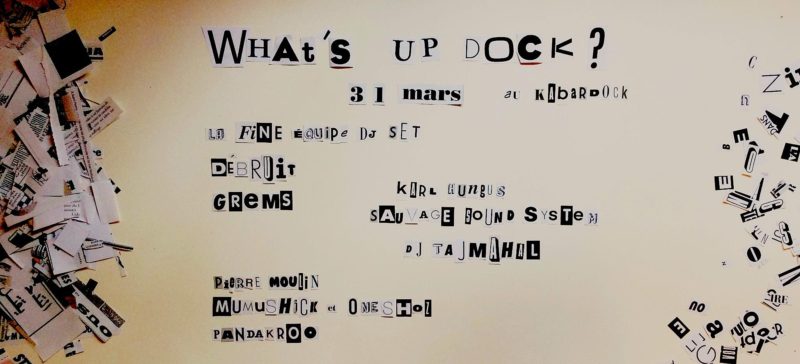 WHAt's UP DOCK?
31 mars au KABARDOCK
LA FiNE équipe DJ SET
DÉBRUiT
GREMS
KARL HUNGUS
SAUVAGE SOUND SYSTEM
DJ TAJMAHAL
PiERRE MOULiN
MUMUSHiCK et ONESHOT
PANDAKROO